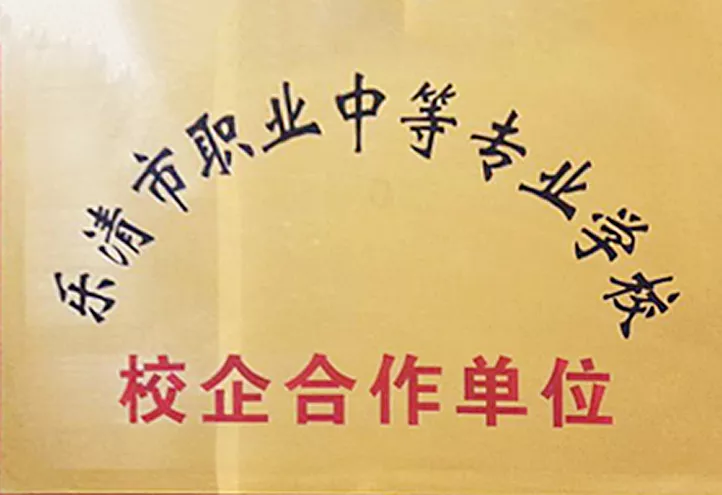 乐清市职业中等专业学校
校企合作单位